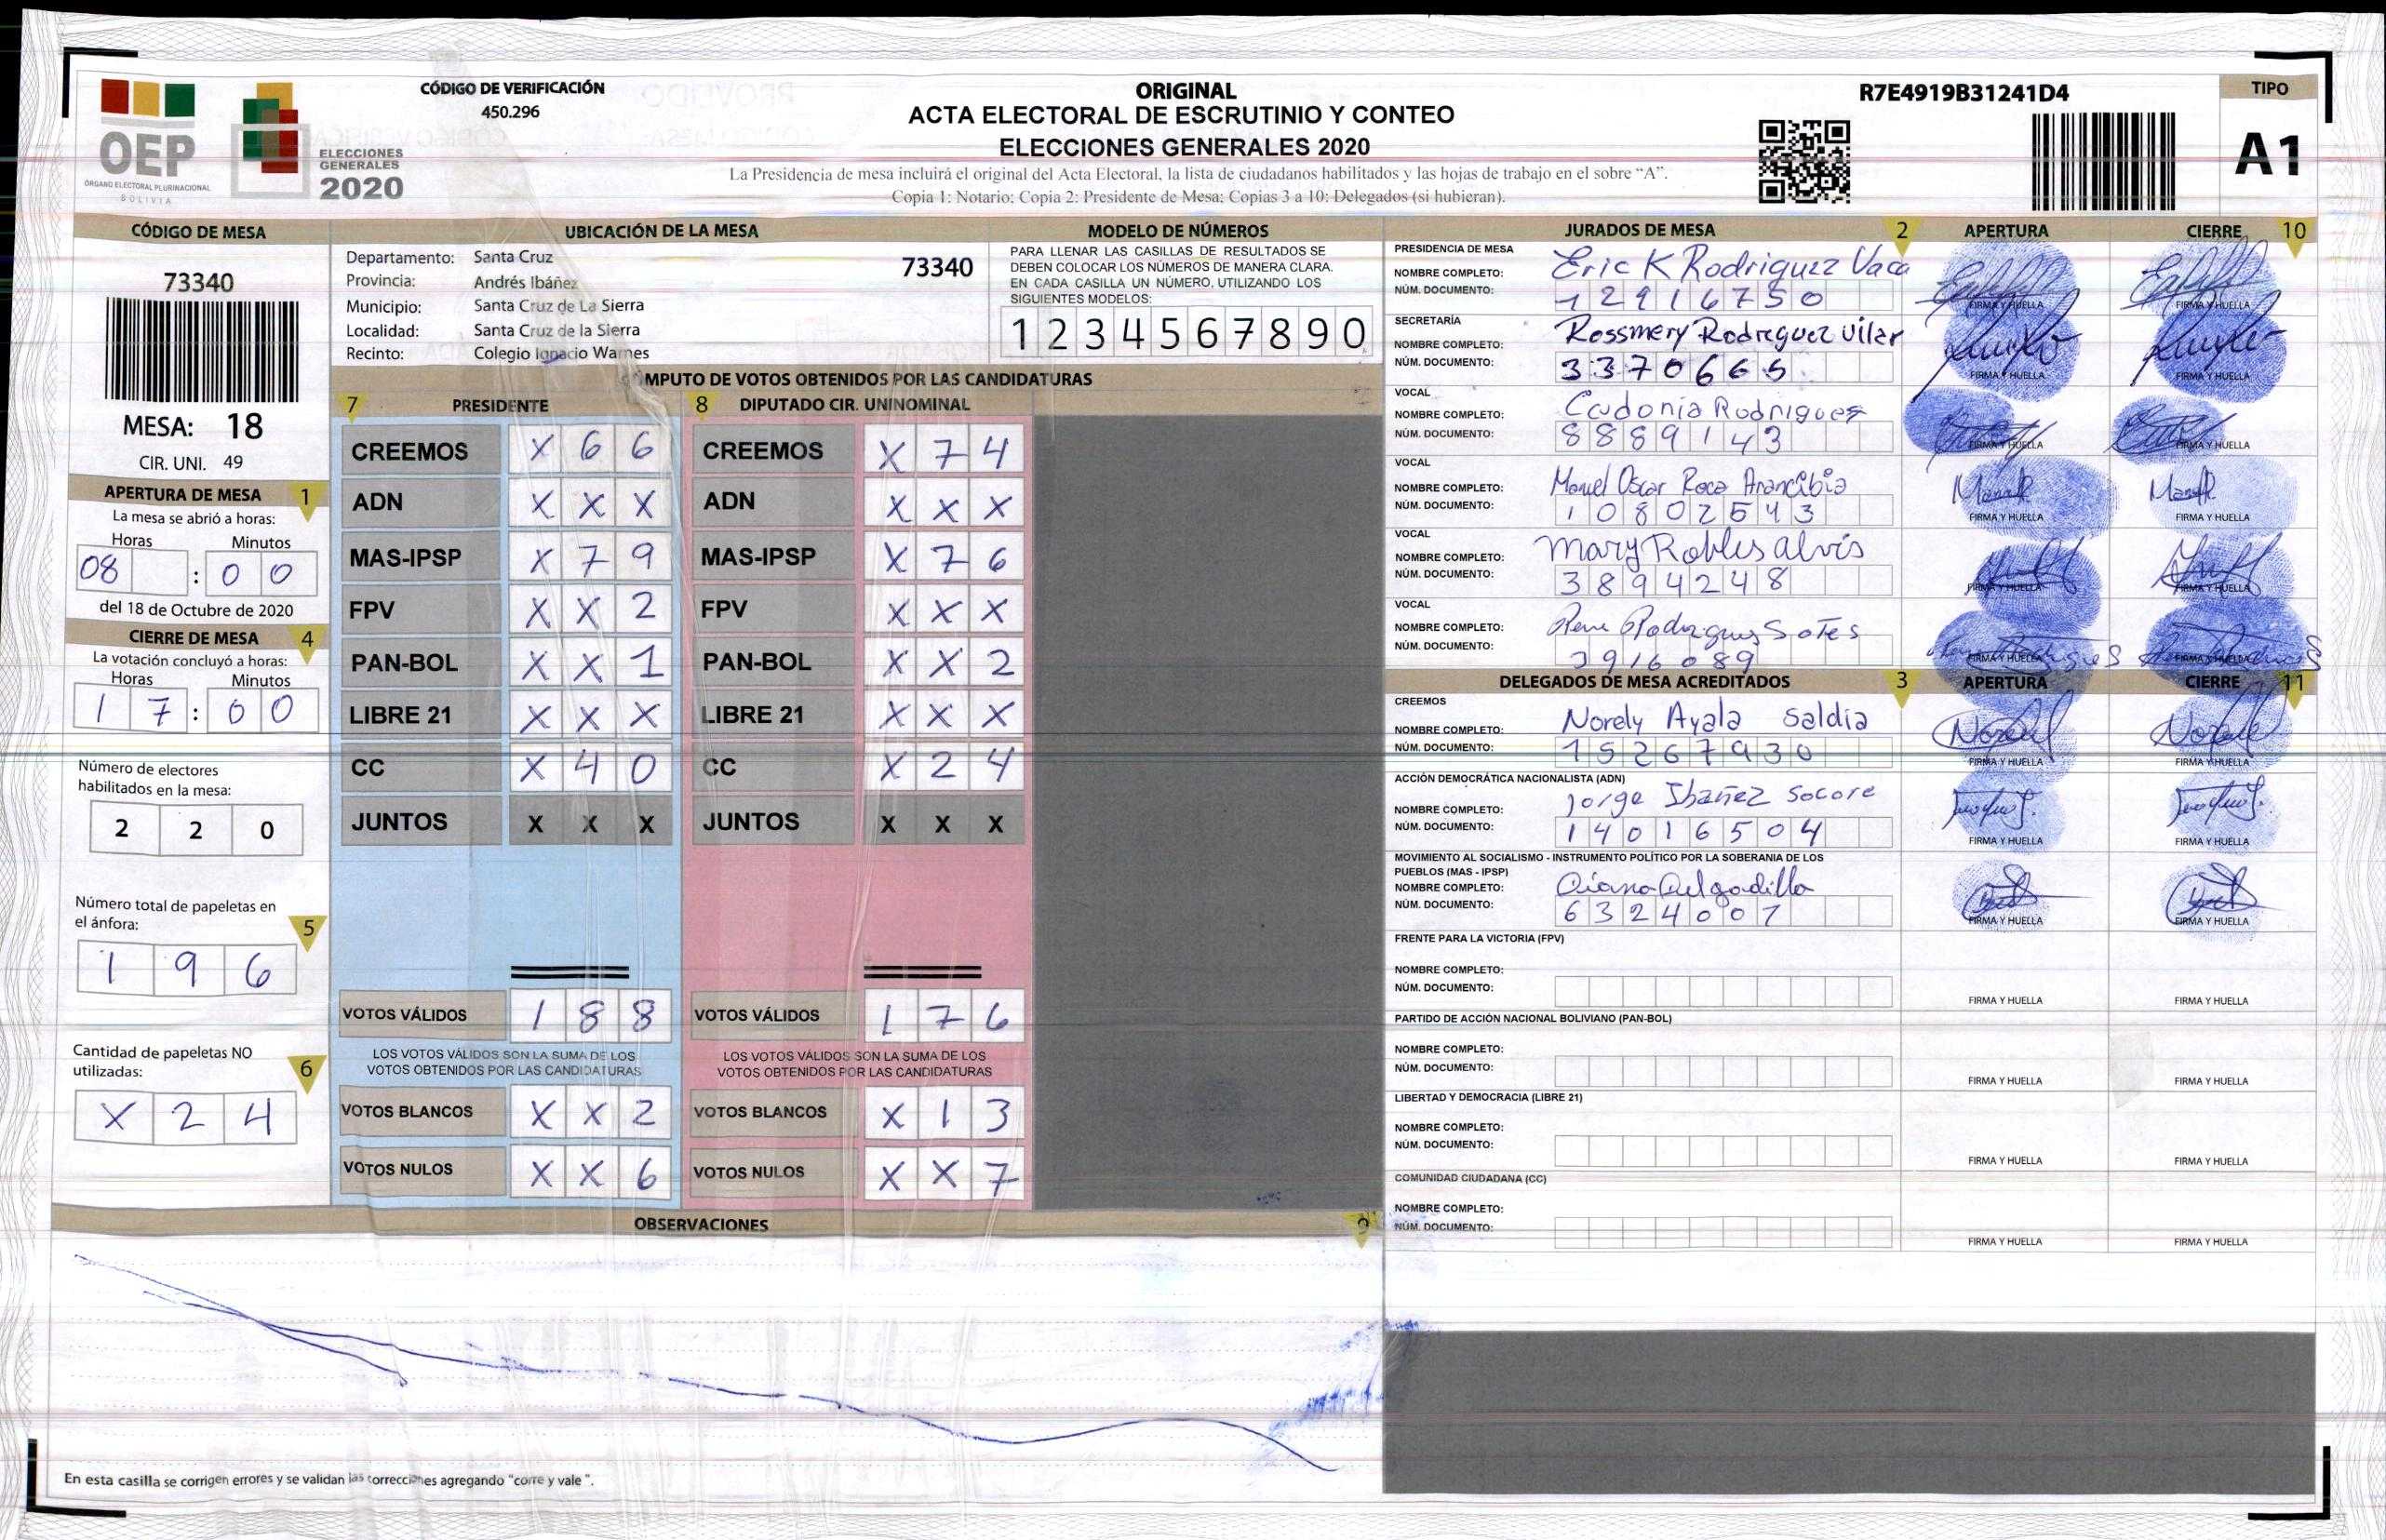 OEP
ÓRGANO ELECTORAL PLURINACIONAL
BOLIVIA
ELECCIONES
GENERALES
2020
CÓDIGO DE VERIFICACIÓN
450.296
ORIGINAL
ACTA ELECTORAL DE ESCRUTINIO Y CONTEO
ELECCIONES GENERALES 2020
La Presidencia de mesa incluirá el original del Acta Electoral, la lista de ciudadanos habilitados y las hojas de trabajo en el sobre “A”.
Copia 1: Notario: Copia 2: Presidente de Mesa: Copias 3 a 10: Delegados (si hubieran).
R7E4919B31241D4
TIPO
A1
CÓDIGO DE MESA
73340
MESA: 18
CIR. UNI. 49
APERTURA DE MESA 1
La mesa se abrió a horas:
Horas Minutos
08 : 0 0
del 18 de Octubre de 2020
CIERRE DE MESA 4
La votación concluyó a horas:
Horas Minutos
1 7 : 0 0
Número de electores
habilitados en la mesa:
2 2 0
Número total de papeletas en
el ánfora: 5
1 9 6
Cantidad de papeletas NO
utilizadas: 6
X 2 4
UBICACIÓN DE LA MESA
Departamento: Santa Cruz
73340
Provincia: Andrés Ibáñez
Municipio: Santa Cruz de La Sierra
Localidad: Santa Cruz de la Sierra
Recinto: Colegio Ignacio Warnes
MODELO DE NÚMEROS
PARA LLENAR LAS CASILLAS DE RESULTADOS SE
DEBEN COLOCAR LOS NÚMEROS DE MANERA CLARA.
EN CADA CASILLA UN NÚMERO, UTILIZANDO LOS
SIGUIENTES MODELOS:
1 2 3 4 5 6 7 8 9 0
CÓMPUTO DE VOTOS OBTENIDOS POR LAS CANDIDATURAS
7 PRESIDENTE 8 DIPUTADO CIR. UNINOMINAL
CREEMOS X 6 6 CREEMOS X 7 4
ADN X X X ADN X X X
MAS-IPSP X 7 9 MAS-IPSP X 7 6
FPV X X 2 FPV X X X
PAN-BOL X X 1 PAN-BOL X X 2
LIBRE 21 X X X LIBRE 21 X X X
CC X 4 0 CC X 2 4
JUNTOS X X X JUNTOS X X X
VOTOS VÁLIDOS 1 8 8 VOTOS VÁLIDOS 1 7 6
LOS VOTOS VÁLIDOS SON LA SUMA DE LOS LOS VOTOS VÁLIDOS SON LA SUMA DE LOS
VOTOS OBTENIDOS POR LAS CANDIDATURAS VOTOS OBTENIDOS POR LAS CANDIDATURAS
VOTOS BLANCOS X X 2 VOTOS BLANCOS X 1 3
VOTOS NULOS X X 6 VOTOS NULOS X X 7
OBSERVACIONES 9
En esta casilla se corrigen errores y se validan las correcciones agregando “corre y vale ”.
JURADOS DE MESA 2 APERTURA CIERRE 10
PRESIDENCIA DE MESA
NOMBRE COMPLETO: Eric K Rodriguez Vaca
NÚM. DOCUMENTO: 12916750
FIRMA Y HUELLA FIRMA Y HUELLA
SECRETARÍA
NOMBRE COMPLETO: Rossmery Rodriguez Vilar
NÚM. DOCUMENTO: 3370665
FIRMA Y HUELLA FIRMA Y HUELLA
VOCAL
NOMBRE COMPLETO: Rodriguez
NÚM. DOCUMENTO: 8889143
FIRMA Y HUELLA FIRMA Y HUELLA
VOCAL
NOMBRE COMPLETO: Manuel Oscar Roca Arancibia
NÚM. DOCUMENTO: 10802543
FIRMA Y HUELLA FIRMA Y HUELLA
VOCAL
NOMBRE COMPLETO: Mary Robles alvis
NÚM. DOCUMENTO: 3894248
FIRMA Y HUELLA FIRMA Y HUELLA
VOCAL
NOMBRE COMPLETO: Rene Rodriguez
NÚM. DOCUMENTO: 3916089
FIRMA Y HUELLA FIRMA Y HUELLA
DELEGADOS DE MESA ACREDITADOS 3 APERTURA CIERRE 11
CREEMOS
NOMBRE COMPLETO: Norely Ayala Saldia
NÚM. DOCUMENTO: 15267930
FIRMA Y HUELLA FIRMA Y HUELLA
ACCIÓN DEMOCRÁTICA NACIONALISTA (ADN)
NOMBRE COMPLETO: Jorge Ibañez Socore
NÚM. DOCUMENTO: 14016504
FIRMA Y HUELLA FIRMA Y HUELLA
MOVIMIENTO AL SOCIALISMO - INSTRUMENTO POLÍTICO POR LA SOBERANIA DE LOS
PUEBLOS (MAS - IPSP)
NOMBRE COMPLETO: Diana Delgadillo
NÚM. DOCUMENTO: 6324007
FIRMA Y HUELLA FIRMA Y HUELLA
FRENTE PARA LA VICTORIA (FPV)
NOMBRE COMPLETO:
NÚM. DOCUMENTO:
FIRMA Y HUELLA FIRMA Y HUELLA
PARTIDO DE ACCIÓN NACIONAL BOLIVIANO (PAN-BOL)
NOMBRE COMPLETO:
NÚM. DOCUMENTO:
FIRMA Y HUELLA FIRMA Y HUELLA
LIBERTAD Y DEMOCRACIA (LIBRE 21)
NOMBRE COMPLETO:
NÚM. DOCUMENTO:
FIRMA Y HUELLA FIRMA Y HUELLA
COMUNIDAD CIUDADANA (CC)
NOMBRE COMPLETO:
NÚM. DOCUMENTO:
FIRMA Y HUELLA FIRMA Y HUELLA